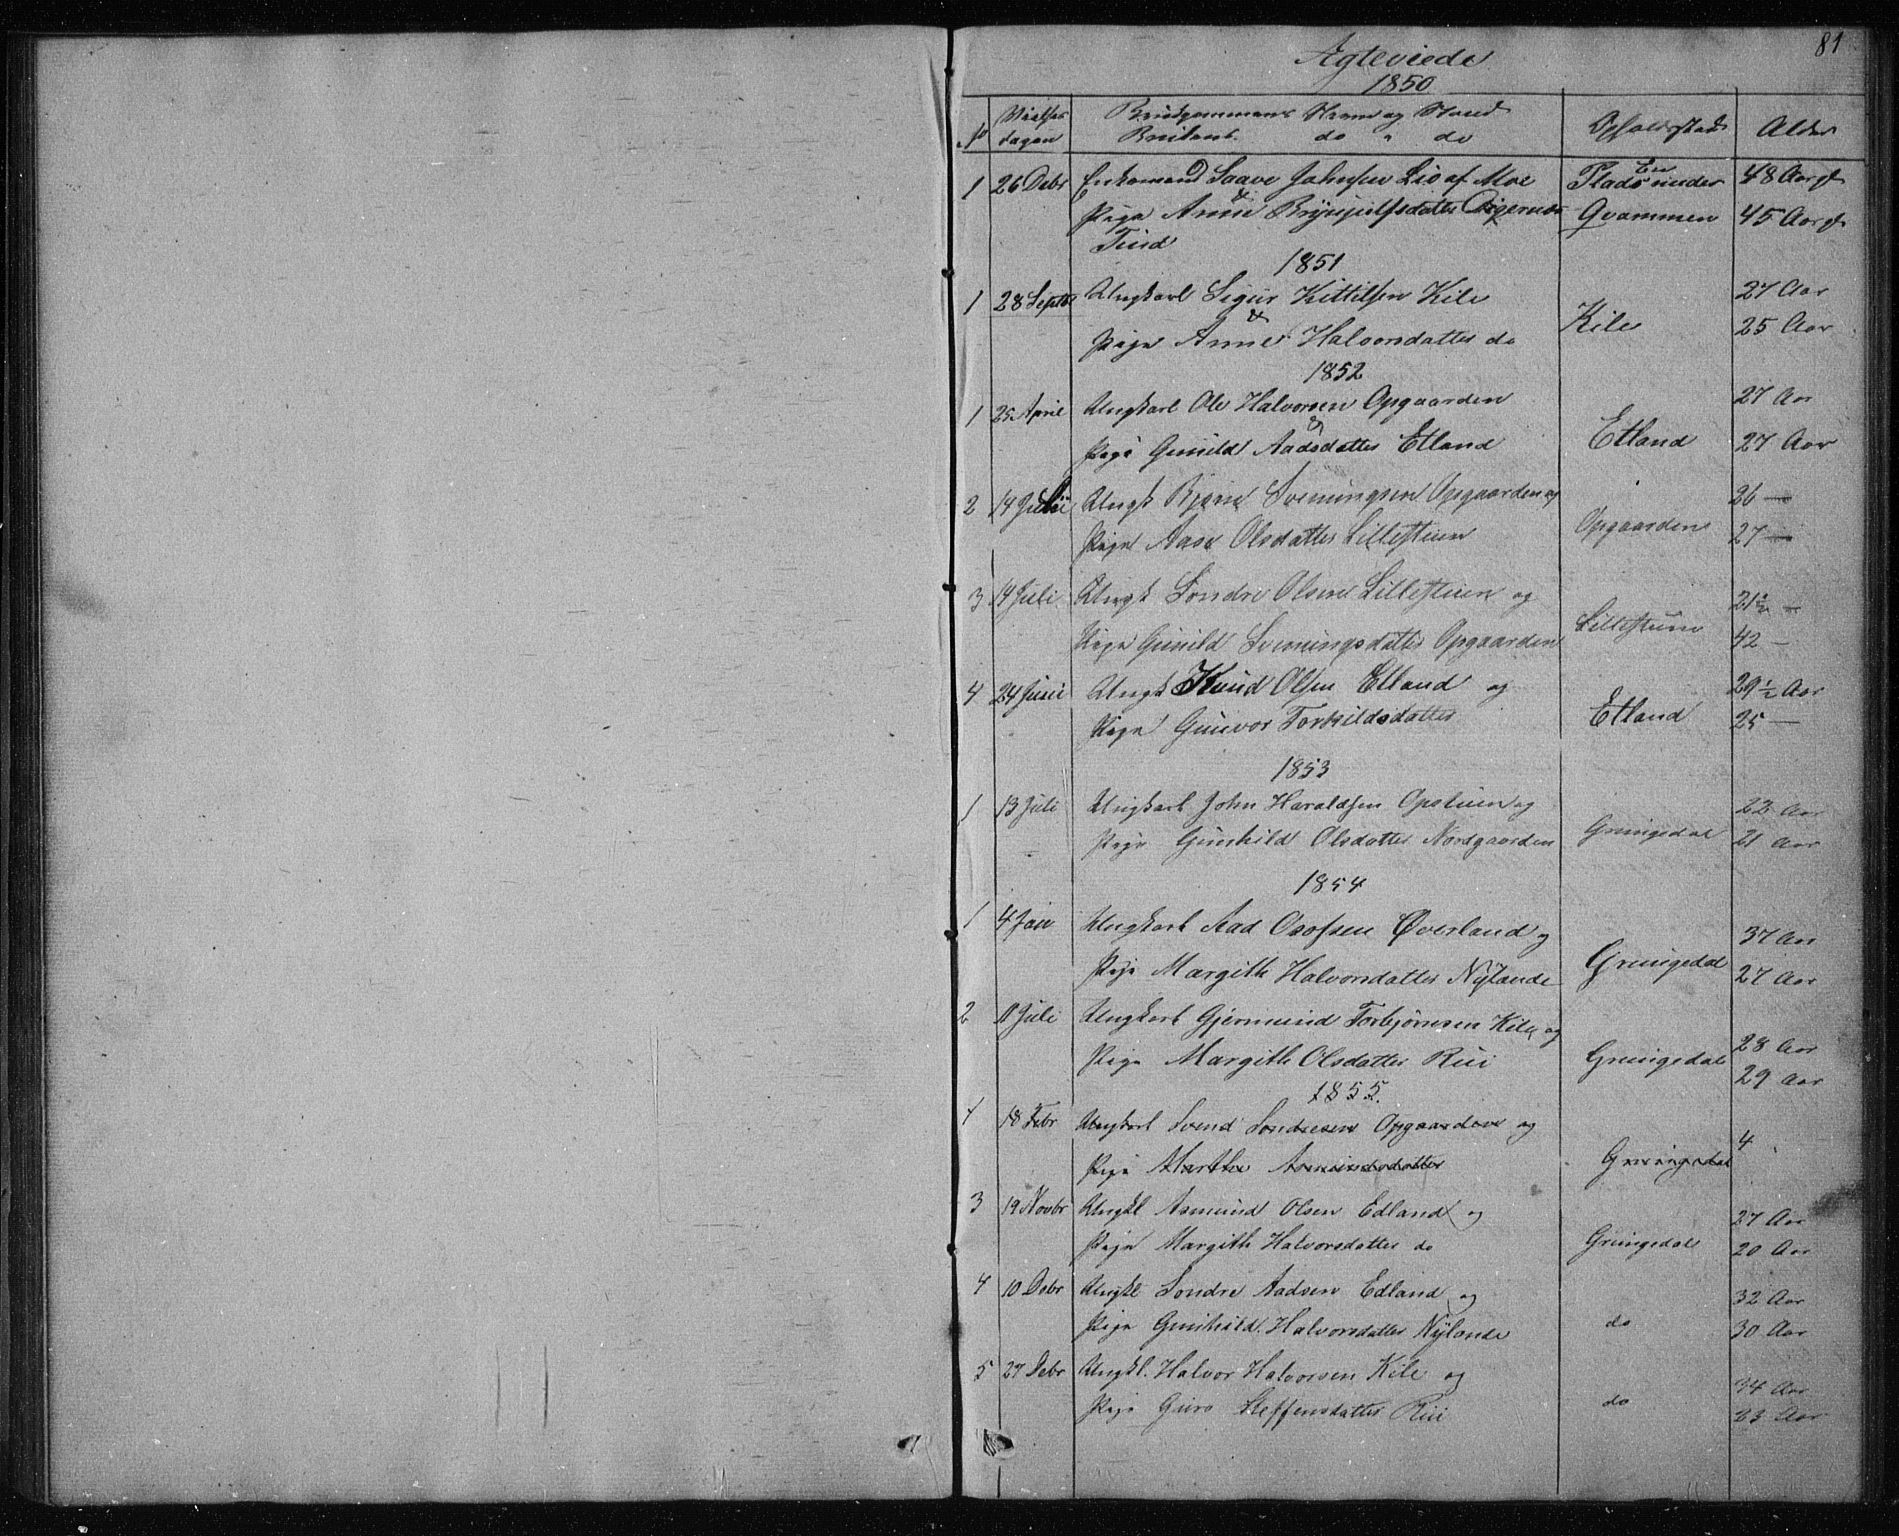 81
Ægteviede
1850
No Vielses dagen Brudgommens Navn og Stand Opholdssted Alder
Brudens do " do
1 26 Debr Enkemand Saave Johnsen Lio af Moe En Pladsunder 48 Aar gl
& Pige Anne Brynjulfsdatter Qvammen 45 Aar gl
1851
1 28 Septbr Ungkarl Sigur Kittilsen Kile Kile 27 Aar
& Pige Anne Halvorsdatter do 25 Aar
1852
1 25 April Ungkarl Ole Halvorsen Opgaarden 27 Aar
og Pige Gunild Aadsdatter Etland Etland 27 Aar
2 14 Juli Ungk Bjørn Sveningsen Opgaarden og 26 —
Pige Aase Olsdatter Lillestuen Opgaarden 27 —
3 14 Juli Ungk Sondre Olsen Lillestuen og 21½ —
Pige Gunild Sveningsdatter Opgaarden Lillestuen 42 —
4 24 Juni Ungk Knud Olsen Etland og 29½ Aar
Pige Gunvor Torkildsdatter Etland 25 —
1853
1 13 Juli Ungkarl John Haraldsen Opstuen og 22 Aar
Pige Gunhild Olsdatter Nordgaarden Grungedal 21 Aar
1854
1 4 Jan Ungkarl Aad Osofsen Øverland og 37 Aar
Pige Margith Halvorsdatter Nylande Grungedal 27 Aar
2 11 Juli Ungkarl Gjermund Torbjørnsen Kile og 28 Aar
Pige Margith Olsdatter Rui Grungedal 29 Aar
1855.
1 18 Febr Ungkarl Svend Sondresen Opgaarden og 4
Pige Marthe Asmundsdatter Grungedal
3 19 Novbr Ungkl Asmund Olsen Edland og 27 Aar
Pige Margith Halvorsdatter do Grungedal 20 Aar
4 10 Debr Ungkl Sondre Aadsen Edland og 32 Aar
Pige Gunhild Halvorsdatter Nylande do 30 Aar
5 27 Debr Ungkl. Halvor Halvorsen Kile og 34 Aar
Pige Guro Steffensdatter Rui do 23 Aar